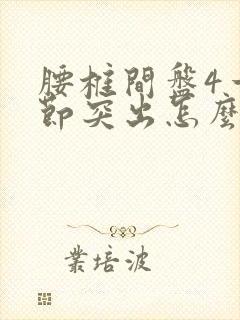 腰柱間盤4
節突出怎麼
業培波